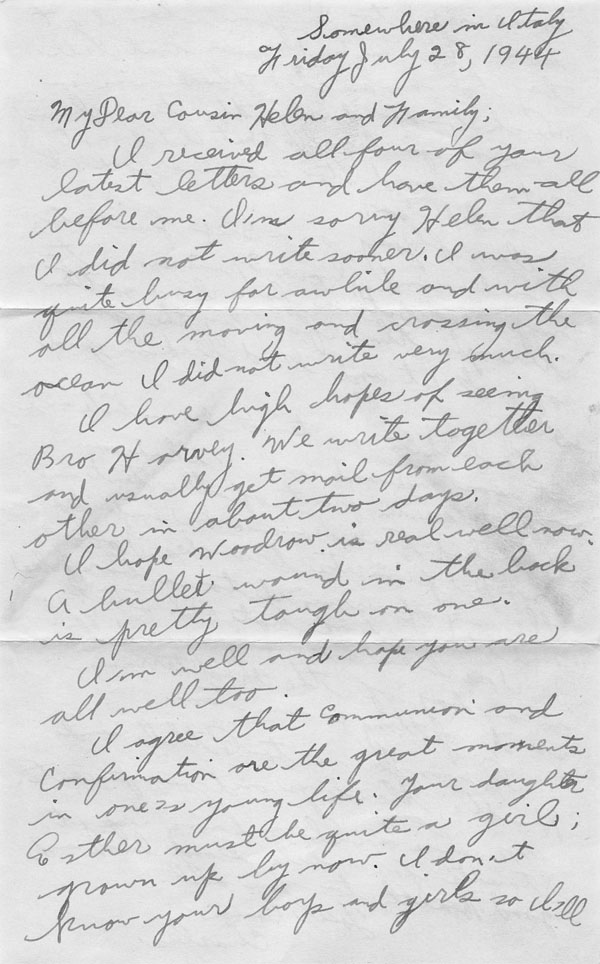 Somewhere in Italy
Friday July 28, 1944
My Dear Cousin Helen and Family;
I received all four of your
latest letters and have them all
before me. I'm sorry Helen that
I did not write sooner. I was
quite busy for awhile and with
all the moving and crossing the
ocean I did not write very much.
I have high hopes of seeing
Bro Harvey. We write together
and usually get mail from each
other in about two days.
I hope Woodrow is real well now.
A bullet wound in the back
is pretty tough on one.
I'm well and hope you are
all well too.
I agree that Communion and
Confirmation are the great moments
in one's young life. Your daughter
Esther must be quite a girl;
grown up by now. I don't
know your boys and girls so I'll